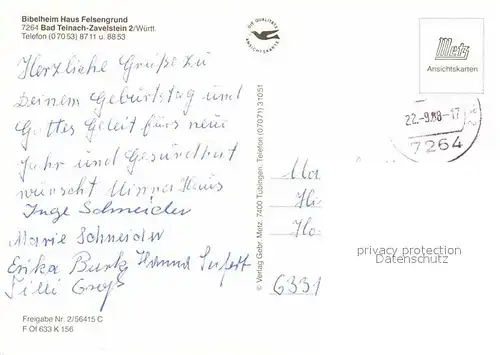 Bibelheim Haus Felsengrund
7264 Bad Teinach-Zavelstein 2/Württ.
Telefon (07053) 8711 u. 8853
DIE QUALITÄTS
ANSICHTSKARTE
Metz
Ansichtskarten
Herzliche Grüße zu
Deinem Geburtstag und
Gottes Geleit fürs neue
Jahr und Gesundheit
wünscht Minna Haus
Inge Schneider
Marie Schneider
Erika Burk Hanna Seifert
Tilli Groß
22.-9.88-17
7264
© Verlag Gebr. Metz, 7400 Tübingen, Telefon (07071) 31051
Ma
Hi
Ho
6331
privacy protection
Datenschutz
Freigabe Nr. 2/56415 C
F Of 633 K 156